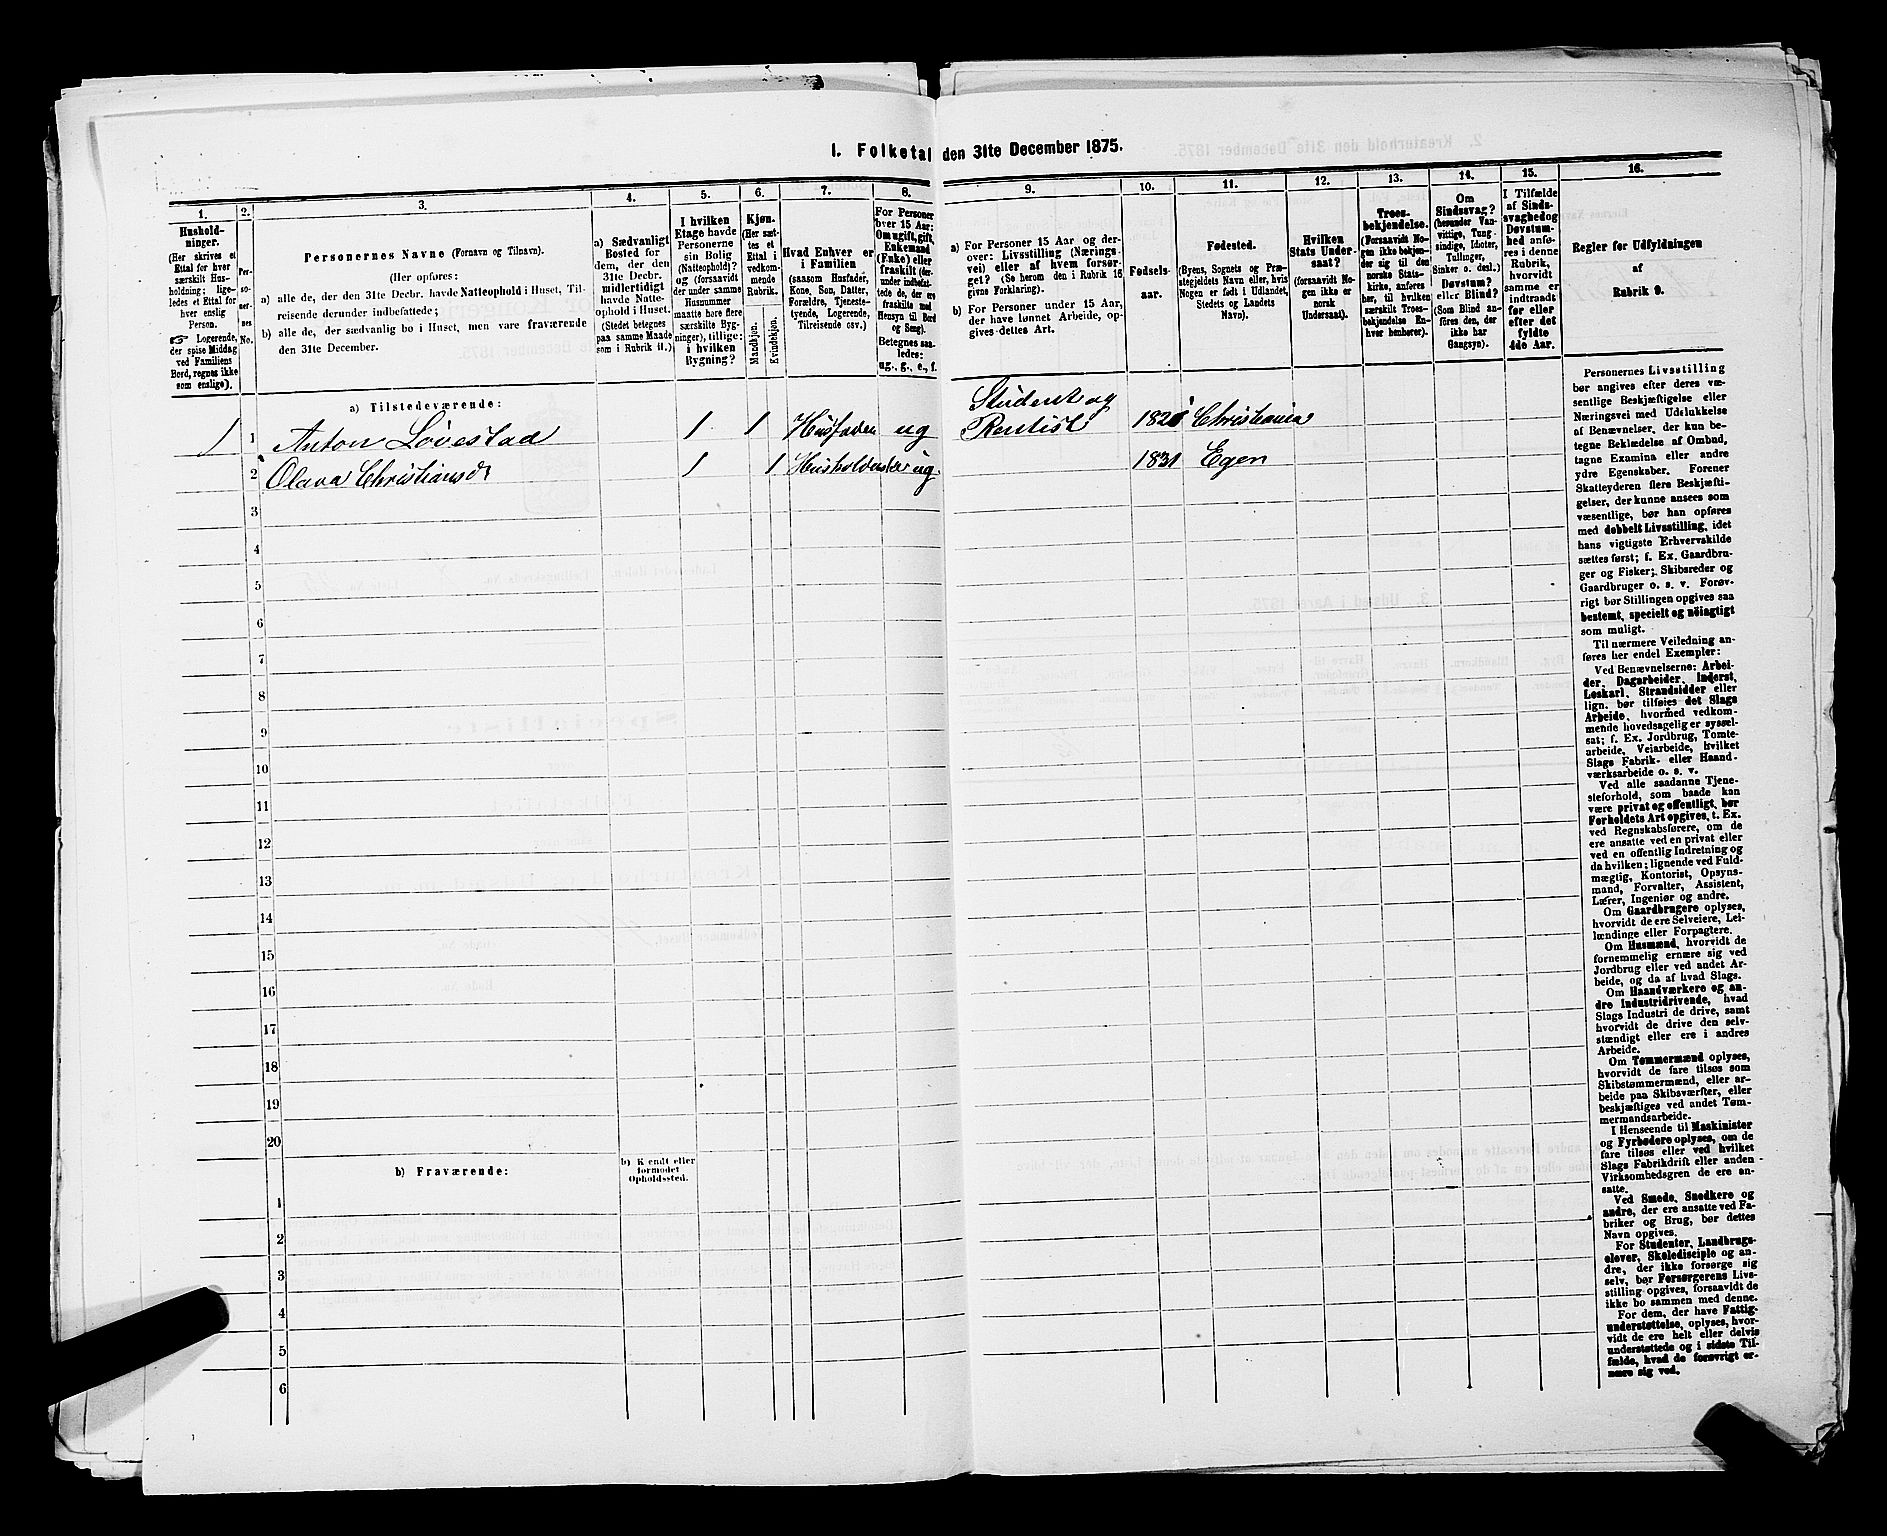 I. Folketal den 31te December 1875.
1.
Hushold-
ninger.
(Her skrives et
Ettal for hver
særskilt Hus-
holdning; lige-
ledes et Ettal for
hver enslig
Person.
☞ Logerende,
der spise Middag
ved Familiens
Bord, regnes ikke
som enslige).
2.
Per-
so-
ner-
nes
No.
3.
Personernes Navne (Fornavn og Tilnavn).
(Her opføres:
a) alle de, der den 31te Decbr. havde Natteophold i Huset, Til-
reisende derunder indbefattede;
b) alle de, der sædvanlig bo i Huset, men vare fraværende
den 31te December.
4.
a) Sædvanligt
Bosted for
dem, der den
31te Decbr.
midlertidigt
havde Natte-
ophold i Huset.
(Stedet betegnes
paa samme Maade
som i Rubrik 11.)
5.
I hvilken
Etage havde
Personerne
sin Bolig
(Natteophold)?
og (forsaavidt
der under samme
Husnummer
maatte høre flere
særskilte Byg-
ninger), tillige:
i hvilken
Bygning?
6.
Kjøn.
(Her sæt-
tes et
Ettal i
vedkom-
mende
Rubrik.
Mandkjøn.
Kvindekjøn.
7.
Hvad Enhver er
i Familien
(saasom Husfader,
Kone, Søn, Datter,
Forældre, Tjeneste-
tyende, Logerende,
Tilreisende osv.)
8.
For Personer
over 15 Aar:
Om ugift, gift,
Enkemand
(Enke) eller
fraskilt (der-
under indbefat-
tede de, der ere
fraskilte med
Hensyn til Bord
og Seng).
Betegnes saa-
ledes:
ug., g., e., f.
9.
a) For Personer 15 Aar og der-
over: Livsstilling (Nærings-
vei) eller af hvem forsør-
get? (Se herom den i Rubrik 16
givne Forklaring).
b) For Personer under 15 Aar,
der have lønnet Arbeide, op-
gives dettes Art.
10.
Fødsels-
aar.
11.
Fødested.
(Byens, Sognets og Præ-
stegjeldets Navn eller, hvis
Nogen er født i Udlandet,
Stedets og Landets
Navn).
12.
Hvilken
Stats Under-
saat?
(forsaavidt No-
gen ikke er
norsk
Undersaat).
13.
Troes-
bekjendelse.
(Forsaavidt No-
gen ikke bekjen-
der sig til den
norske Stats-
kirke, anføres
her, til hvilken
særskilte Troes-
bekjendelse En-
hver henhører).
14.
Om
Sindssvag?
(herunder Van-
vittige, Tung-
sindige, Idioter,
Tullinger,
Sinker o. desl.)
Døvstum?
eller Blind?
(Som Blind an-
føres den, der
ikke har
Gangsyn).
15.
I Tilfælde
af Sinds-
svaghed og
Døvstum-
hed anfø-
res i denne
Rubrik,
hvorvidt
samme er
indtraadt
før eller
efter det
fyldte
4de Aar.
16.
Regler for Udfyldningen
af
Rubrik 9.
a) Tilstedeværende:
1 1 Anton Løvestad 1 1 Husfader ug Student og Rentist Christiania
2 Olava Christiansd 1 1 Husholderske ug. 1831 Egen
3
4
5
6
7
8
9
10
11
12
13
14
15
16
17
18
19
20
b) Fraværende:
b) Kjendt eller
formodet
Opholdssted.
1
2
3
4
5
6
Personernes Livsstilling
bør angives efter deres væ-
sentlige Beskjæftigelse eller
Næringsvei med Udelukkelse
af Benævnelser, der kun be-
tegne Beklædelse af Ombud,
tagne Examina eller andre
ydre Egenskaber. Forener
Skatteyderen flere Beskjæfti-
gelser, der kunne ansees som
væsentlige, bør han opføres
med dobbelt Livsstilling, idet
hans vigtigste Erhvervskilde
sættes først; f. Ex. Gaardbru-
ger og Fisker; Skibsreder og
Gaardbruger o. s. v. Forøv-
rigt bør Stillingen opgives saa
bestemt, specielt og nöiagtigt
som muligt.
Til nærmere Veiledning an-
føres her endel Exempler:
Ved Benævnelserne: Arbei-
der, Dagarbeider, Inderst,
Løskarl, Strandsidder eller
lign. bør tilføies det Slags
Arbeide, hvormed vedkom-
mende hovedsagelig er syssel-
sat; f. Ex. Jordbrug, Tomte-
arbeide, Veiarbeide, hvilket
Slags Fabrik- eller Haand-
værksarbeide o. s. v.
Ved alle saadanne Tjene-
steforhold, som baade kan
være privat og offentligt, bør
Forholdets Art opgives, t. Ex.
ved Regnskabsførere, om de
ere ansatte ved en privat eller
ved en offentlig Indretning og
da hvilken; lignende ved Fuld-
mægtig, Kontorist, Opsyns-
mand, Forvalter, Assistent,
Lærer, Ingeniør og andre.
Om Gaardbrugere oplyses,
hvorvidt de ere Selveiere, Lei-
lændinge eller Forpagtere.
Om Husmænd, hvorvidt de
fornemmelig ernære sig ved
Jordbrug eller ved andet Ar-
beide, og da af hvad Slags.
Om Haandværkere og an-
dre Industridrivende, hvad
Slags Industri de drive, samt
hvorvidt de drive den selv-
stændigt eller ere i andres
Arbeide.
Om Tømmermænd oplyses,
hvorvidt de fare tilsøs som
Skibstømmermænd, eller ar-
beide paa Skibsværfter, eller
beskjæftiges ved andet Tøm-
mermandsarbeide.
I Henseende til Maskinister
og Fyrbødere oplyses, om de
fare tilsøs eller ved hvilket
Slags Fabrikdrift eller anden
Virksomhedsgren de ere an-
satte.
Ved Smede, Snedkere og
andre, der ere ansatte ved Fa-
briker og Brug, bør dettes
Navn opgives.
For Studenter, Landbrugs-
elever, Skoledisciple og an-
dre, der ikke forsørge sig
selv, bør Forsørgerens Livs-
stilling opgives, forsaavidt de
ikke bo sammen med denne.
For dem, der have Fattig-
understøttelse, oplyses, hvor-
vidt de ere helt eller delvis
understøttede og i sidste Til-
fælde, hvad de forøvrigt er-
nære sig ved.